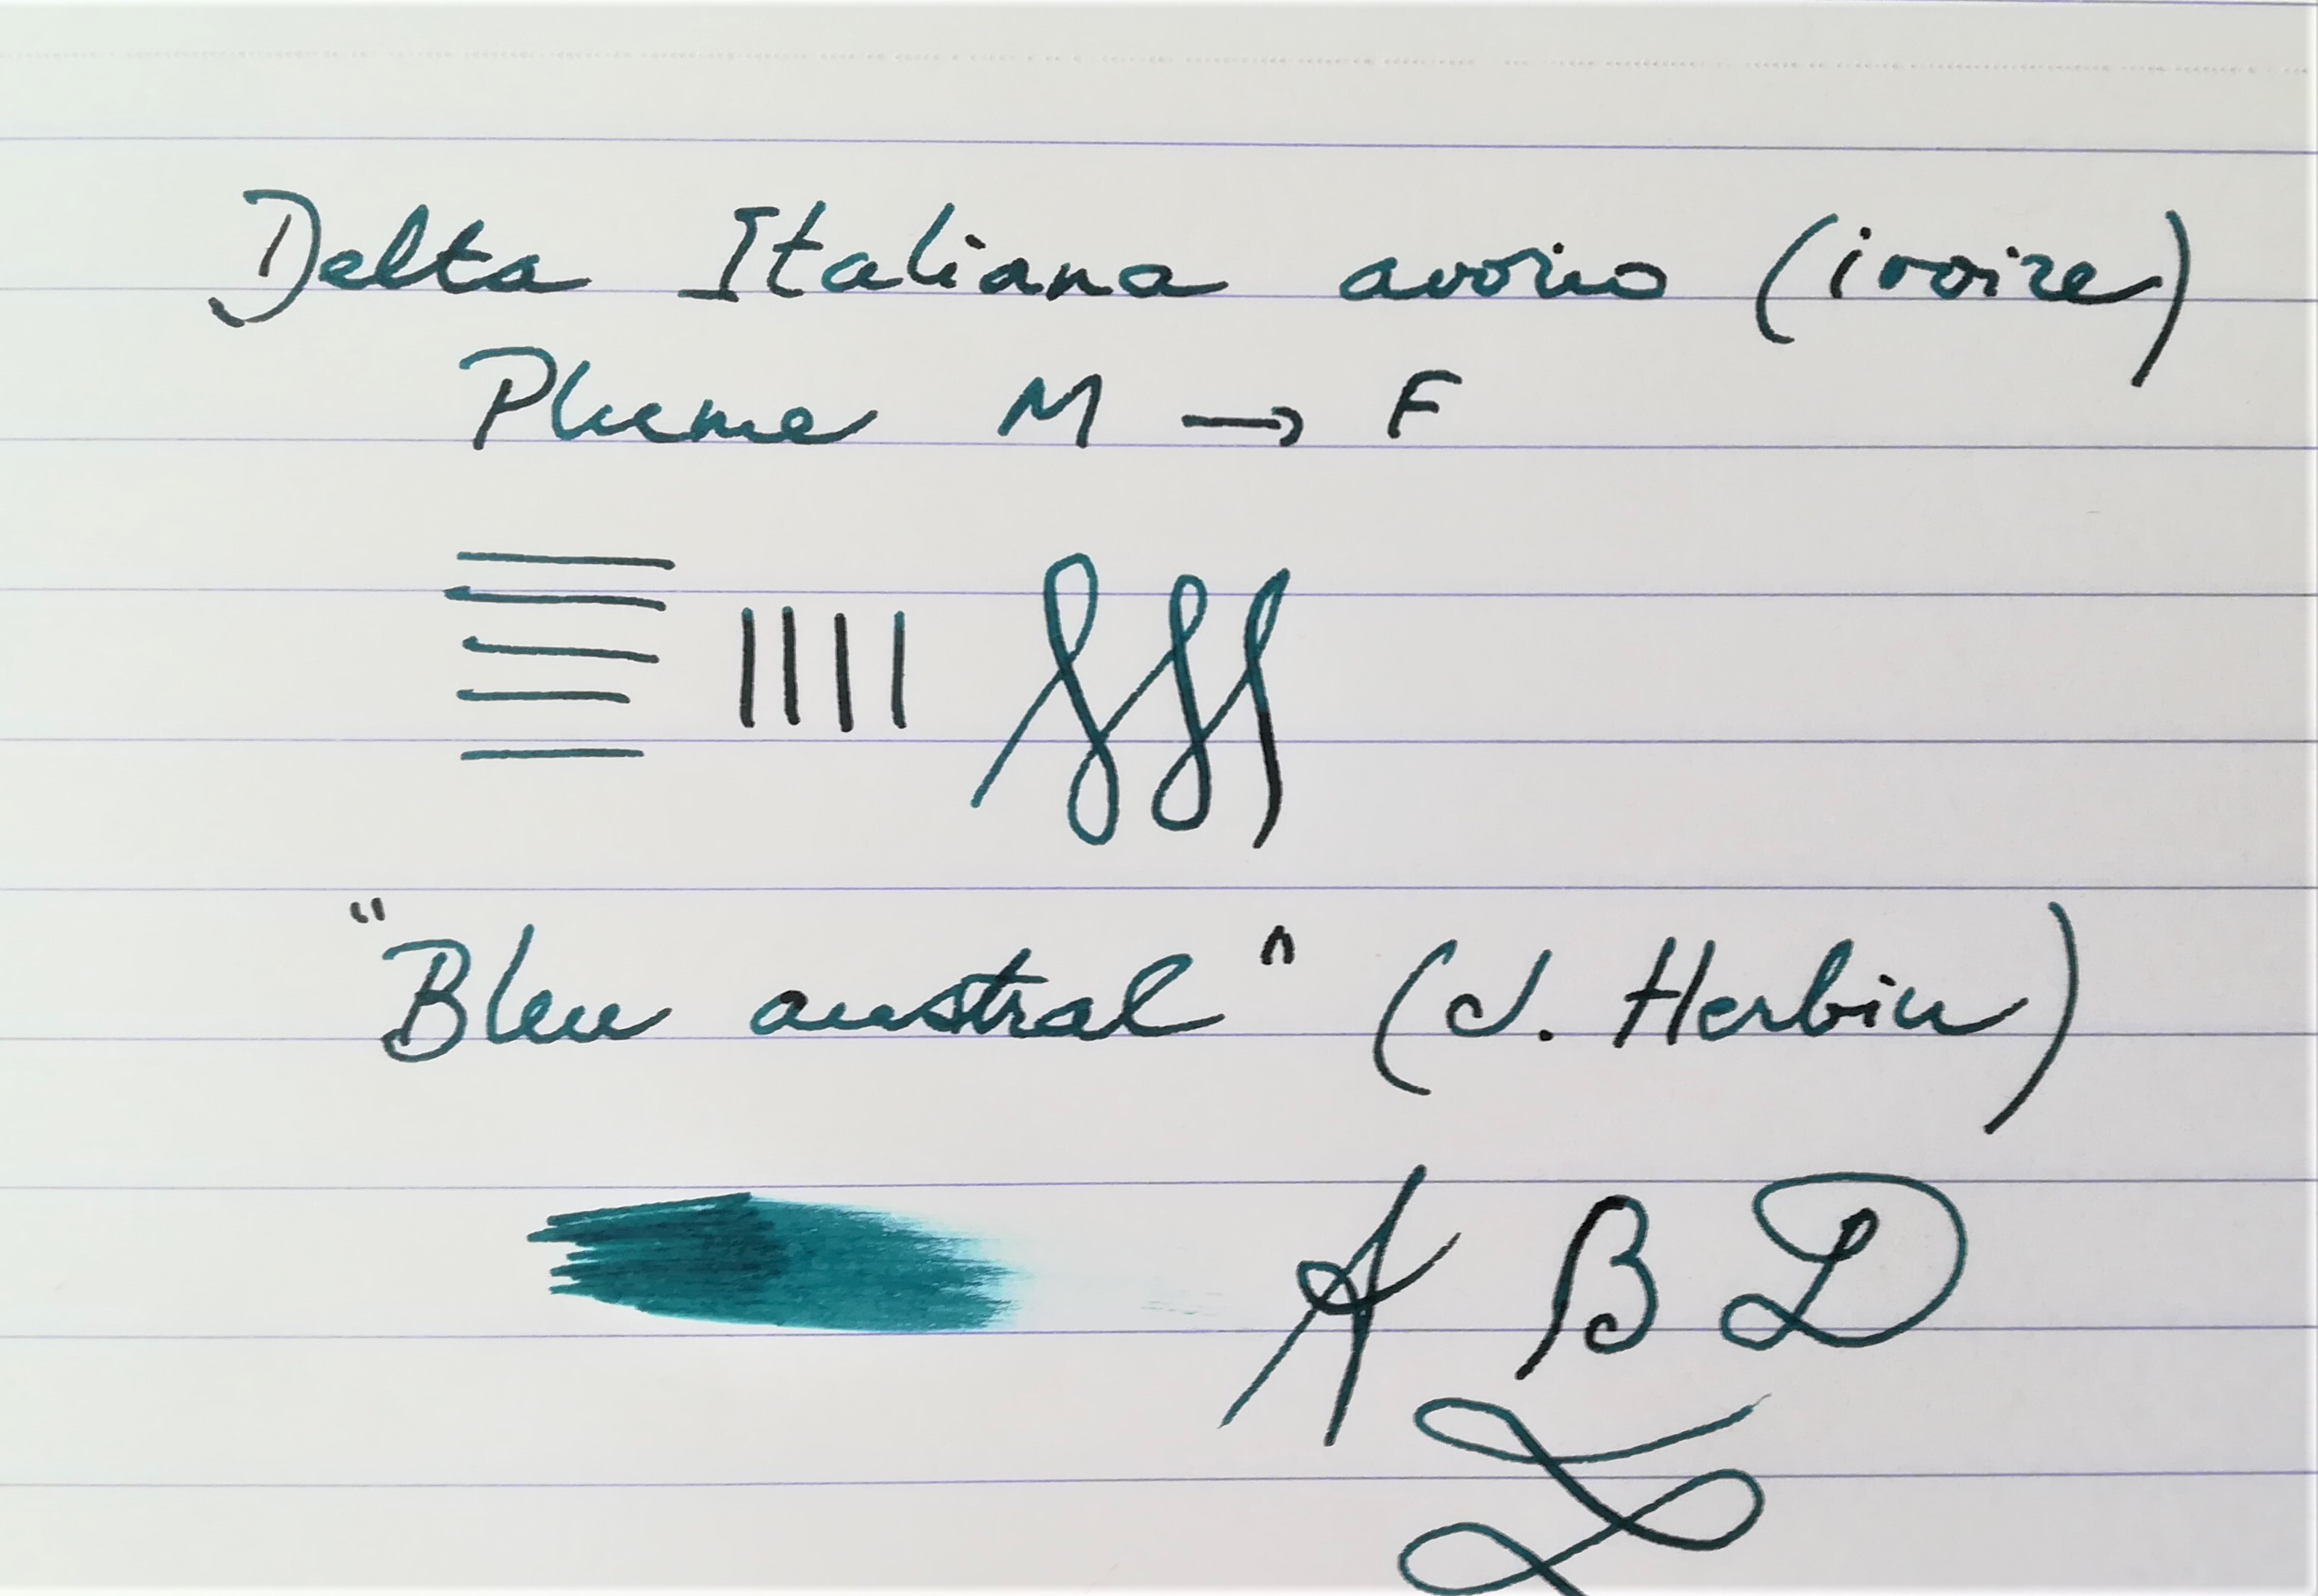 Delta Italiana avorio (ivoire)
Plume M → F
"Bleu austral" (J. Herbin)
A B D